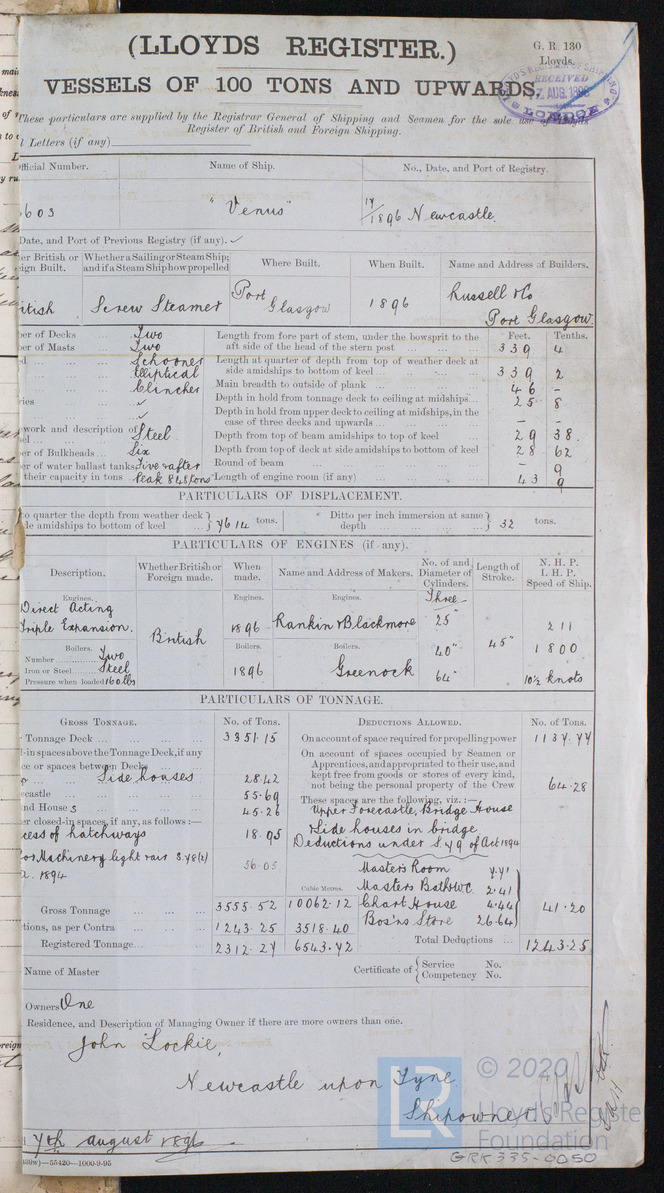 (LLOYDS REGISTER.)
G. R. 130
Lloyds.
VESSELS OF 100 TONS AND UPWARDS,
RECEIVED
AUG. 1896
LONDON
These particulars are supplied by the Registrar General of Shipping and Seamen for the sole use of Lloyds
Register of British and Foreign Shipping.
l Letters (if any)
fficial Number. Name of Ship. No., Date, and Port of Registry.
603 "Venus" 17/1896 Newcastle.
Date, and Port of Previous Registry (if any). ✓
er British or Whether a Sailing or Steam Ship; Where Built. When Built. Name and Address of Builders.
ign Built. and if a Steam Ship how propelled
itish Screw Steamer Port Glasgow 1896 Russell & Co
Port Glasgow.
er of Decks ... Two Length from fore part of stem, under the bowsprit to the Feet. Tenths.
er of Masts ... Two aft side of the head of the stern post ... 339 4
d ... Schooner Length at quarter of depth from top of weather deck at
Elliptical side amidships to bottom of keel ... 339 2
Clincher Main breadth to outside of plank ... 46 -
ries ✓ Depth in hold from tonnage deck to ceiling at midships ... 25 8
✓ Depth in hold from upper deck to ceiling at midships, in the
case of three decks and upwards ... - -
work and description of Steel Depth from top of beam amidships to top of keel ... 29 38
er of Bulkheads ... Six Depth from top of deck at side amidships to bottom of keel 28 62
er of water ballast tanks Five & after Round of beam ... - 9
their capacity in tons Peak 848 tons Length of engine room (if any) ... 43 9
PARTICULARS OF DISPLACEMENT.
o quarter the depth from weather deck Ditto per inch immersion at same
de amidships to bottom of keel ... 7614 tons. depth ... 32 tons.
PARTICULARS OF ENGINES (if any).
Description. Whether British or Foreign made. When made. Name and Address of Makers. No. of and Diameter of Cylinders. Length of Stroke. N. H. P. I. H. P. Speed of Ship.
Engines. Engines. Engines. Three
Direct Acting
Triple Expansion. British 1896 Rankin & Blackmore 25" 45" 211
Boilers. Boilers. Boilers. 40" 1800
Number Two
Iron or Steel Steel 1896 Greenock 64"
Pressure when loaded 160 lbs 10½ knots
PARTICULARS OF TONNAGE.
GROSS TONNAGE. No. of Tons. DEDUCTIONS ALLOWED. No. of Tons.
Tonnage Deck ... 3351.15 On account of space required for propelling power 1137.77
t-in spaces above the Tonnage Deck, if any On account of spaces occupied by Seamen or
ce or spaces between Decks Apprentices, and appropriated to their use, and
Side houses 28.42 kept free from goods or stores of every kind,
not being the personal property of the Crew 64.28
castle 55.69 These spaces are the following, viz. :—
nd Houses 45.26 Upper Forecastle, Bridge House
er closed-in spaces, if any, as follows :— Side houses in bridge
cess of hatchways 18.95 Deductions under S 79 of Act 1894
or Machinery light &air S.78(2) 56.05
1894
Masters Room 7.71
Cubic Metres. Masters Bath & W.C 2.41
Gross Tonnage ... 3555.52 10062.12 Chart House 4.44 41.20
tions, as per Contra ... 1243.25 3518.40 Bos'ns Store 26.64
Registered Tonnage ... 2312.27 6543.72 Total Deductions ... 1243.25
Name of Master Certificate of { Service No.
Competency No.
Owners One
Residence, and Description of Managing Owner if there are more owners than one.
John Lockie,
Newcastle upon Tyne
Shipowner
7th august 1896
55420—1000-9-95
© 2020
LR
Lloyd's Registe
Foundation
GRK335-0050